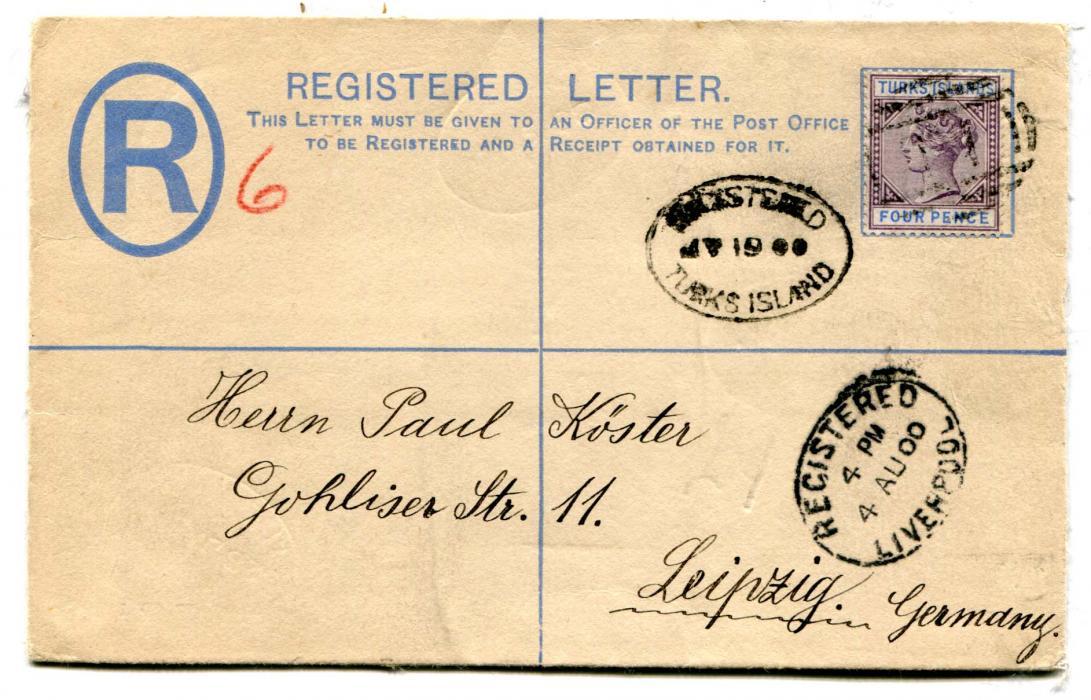 R
REGISTERED LETTER.
THIS LETTER MUST BE GIVEN TO AN OFFICER OF THE POST OFFICE
TO BE REGISTERED AND A RECEIPT OBTAINED FOR IT.
6
TURKS ISLANDS
FOUR PENCE
REGISTERED
19 00
TURKS ISLAND
REGISTERED
4 PM
4 AU 00
LIVERPOOL
Herrn Paul Köster
Gohliser Str. 11.
Leipzig. Germany.